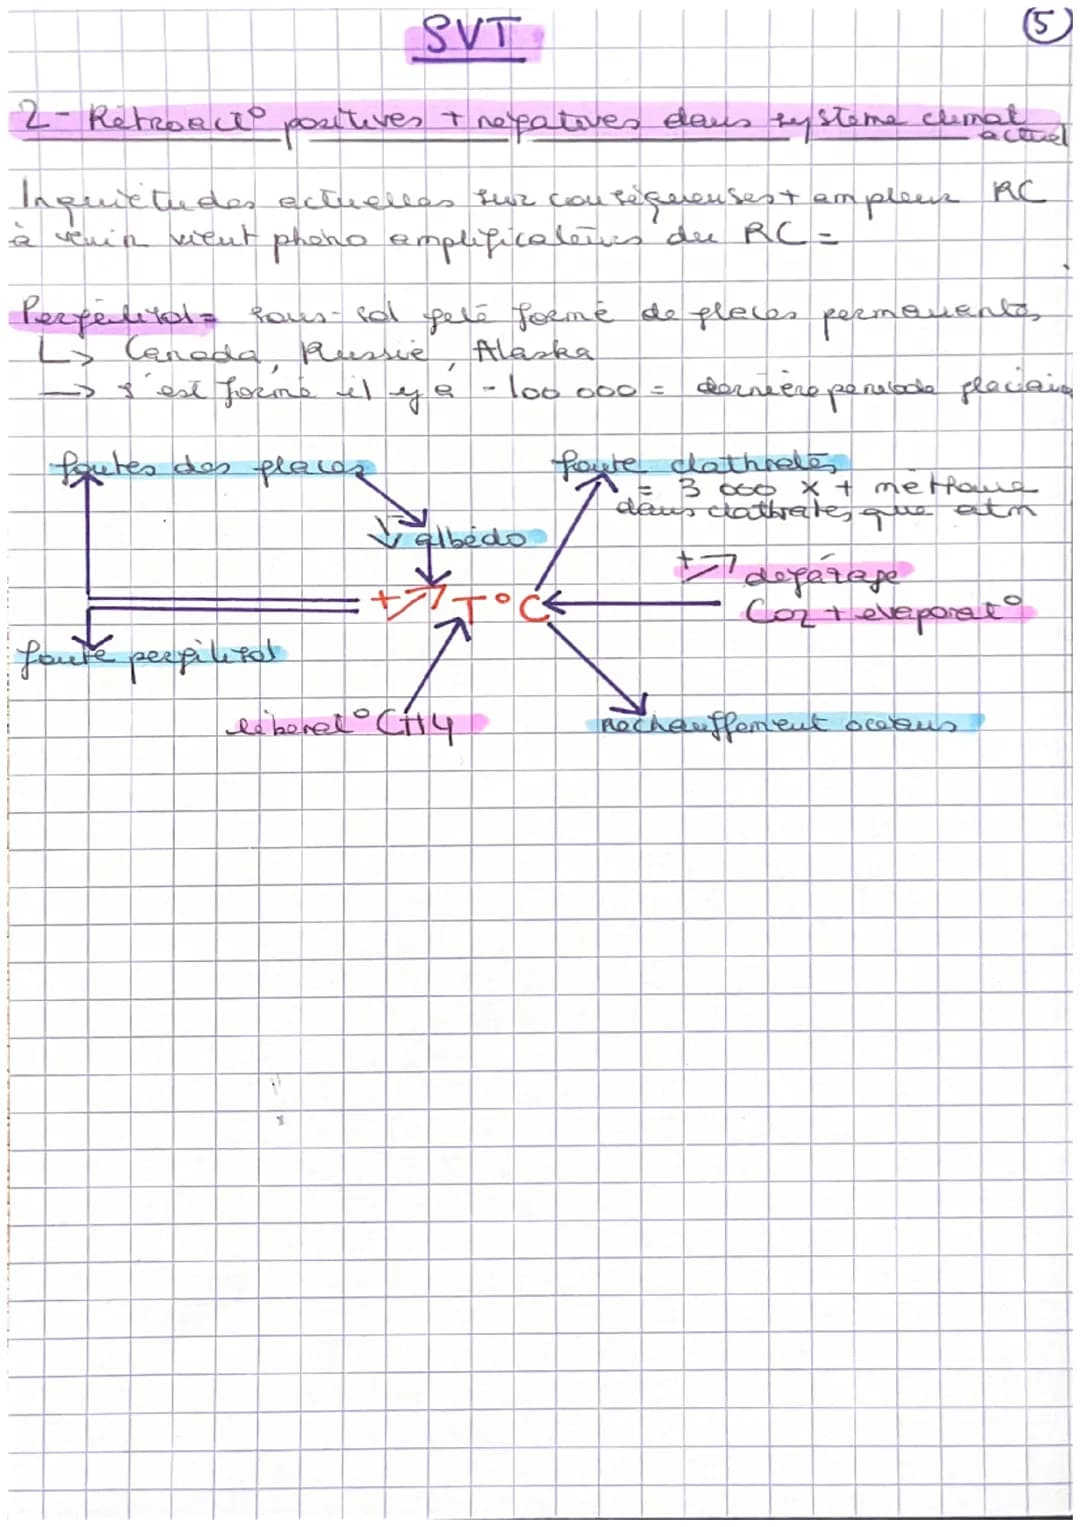 SVT
5
2- Rétroact° positives + négatives dans système climat
actuel
Inquiétudes actuelles sur conséqueuses + ampleur RC
à venir vient phéno amplificateurs du RC =
Pergélisol = sous-sol gelé formé de glaces permanentes
↳ Canada, Russie, Alaska
→ s'est formé il y a -100 000 = dernière période glaciaire
foutes des glaces
foute clathrates
= 3 000 x + méthane
dans clathrates que atm
↓ albédo
+↗ dégazage
+↗ T°C
CO2 + évaporat°
foute pergélisol
libérat° CH4
réchauffement océans